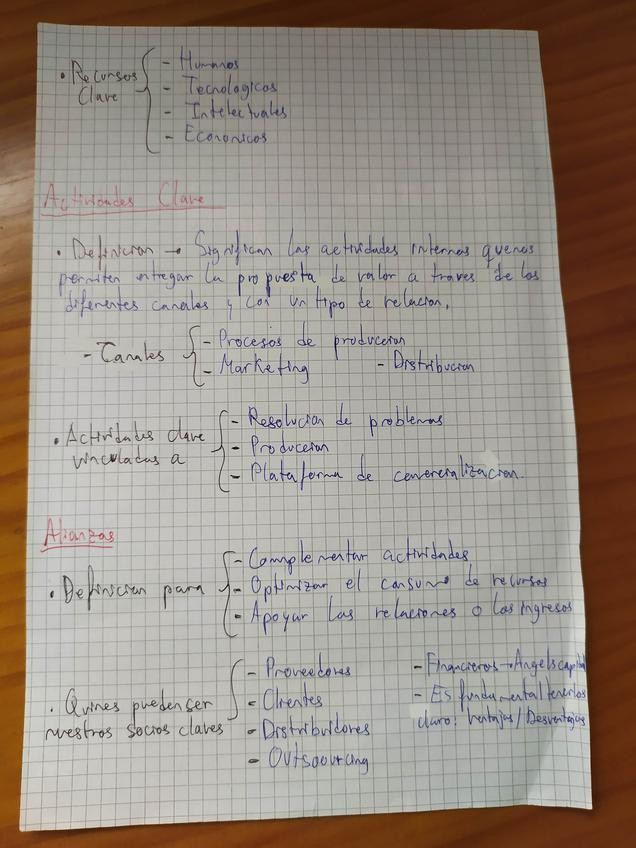 · Recursos Clave
- Humanos
- Tecnologicos
- Intelectuales
- Economicos
Actividades Clave
· Definicion → Significan las actividades internas quenos
permiten entregar la propuesta de valor a traves de los
diferentes canales y con un tipo de relacion.
- Canales
- Procesos de produccion
- Marketing - Distribucion
· Actividades clave
vinculadas a
- Resolucion de problemas
- Produccion
- Plataforma de comercializacion.
Alianzas
· Definicion para
- Complementar actividades
- Optimizar el consumo de recursos
- Apoyar las relaciones o los ingresos
· Quines pueden ser
nuestros socios claves
- Proveedores
- Clientes
- Distribuidores
- Outsourcing
- Financieros → Angels capital
- Es fundamental tenerlos
claro: Ventajas/Desventajas